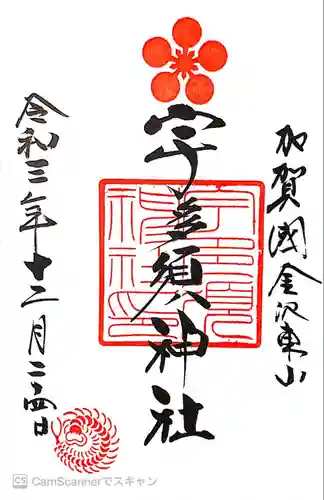 加賀國金沢東山
宇多須神社
令和三年十二月二十四日
CS CamScannerでスキャン